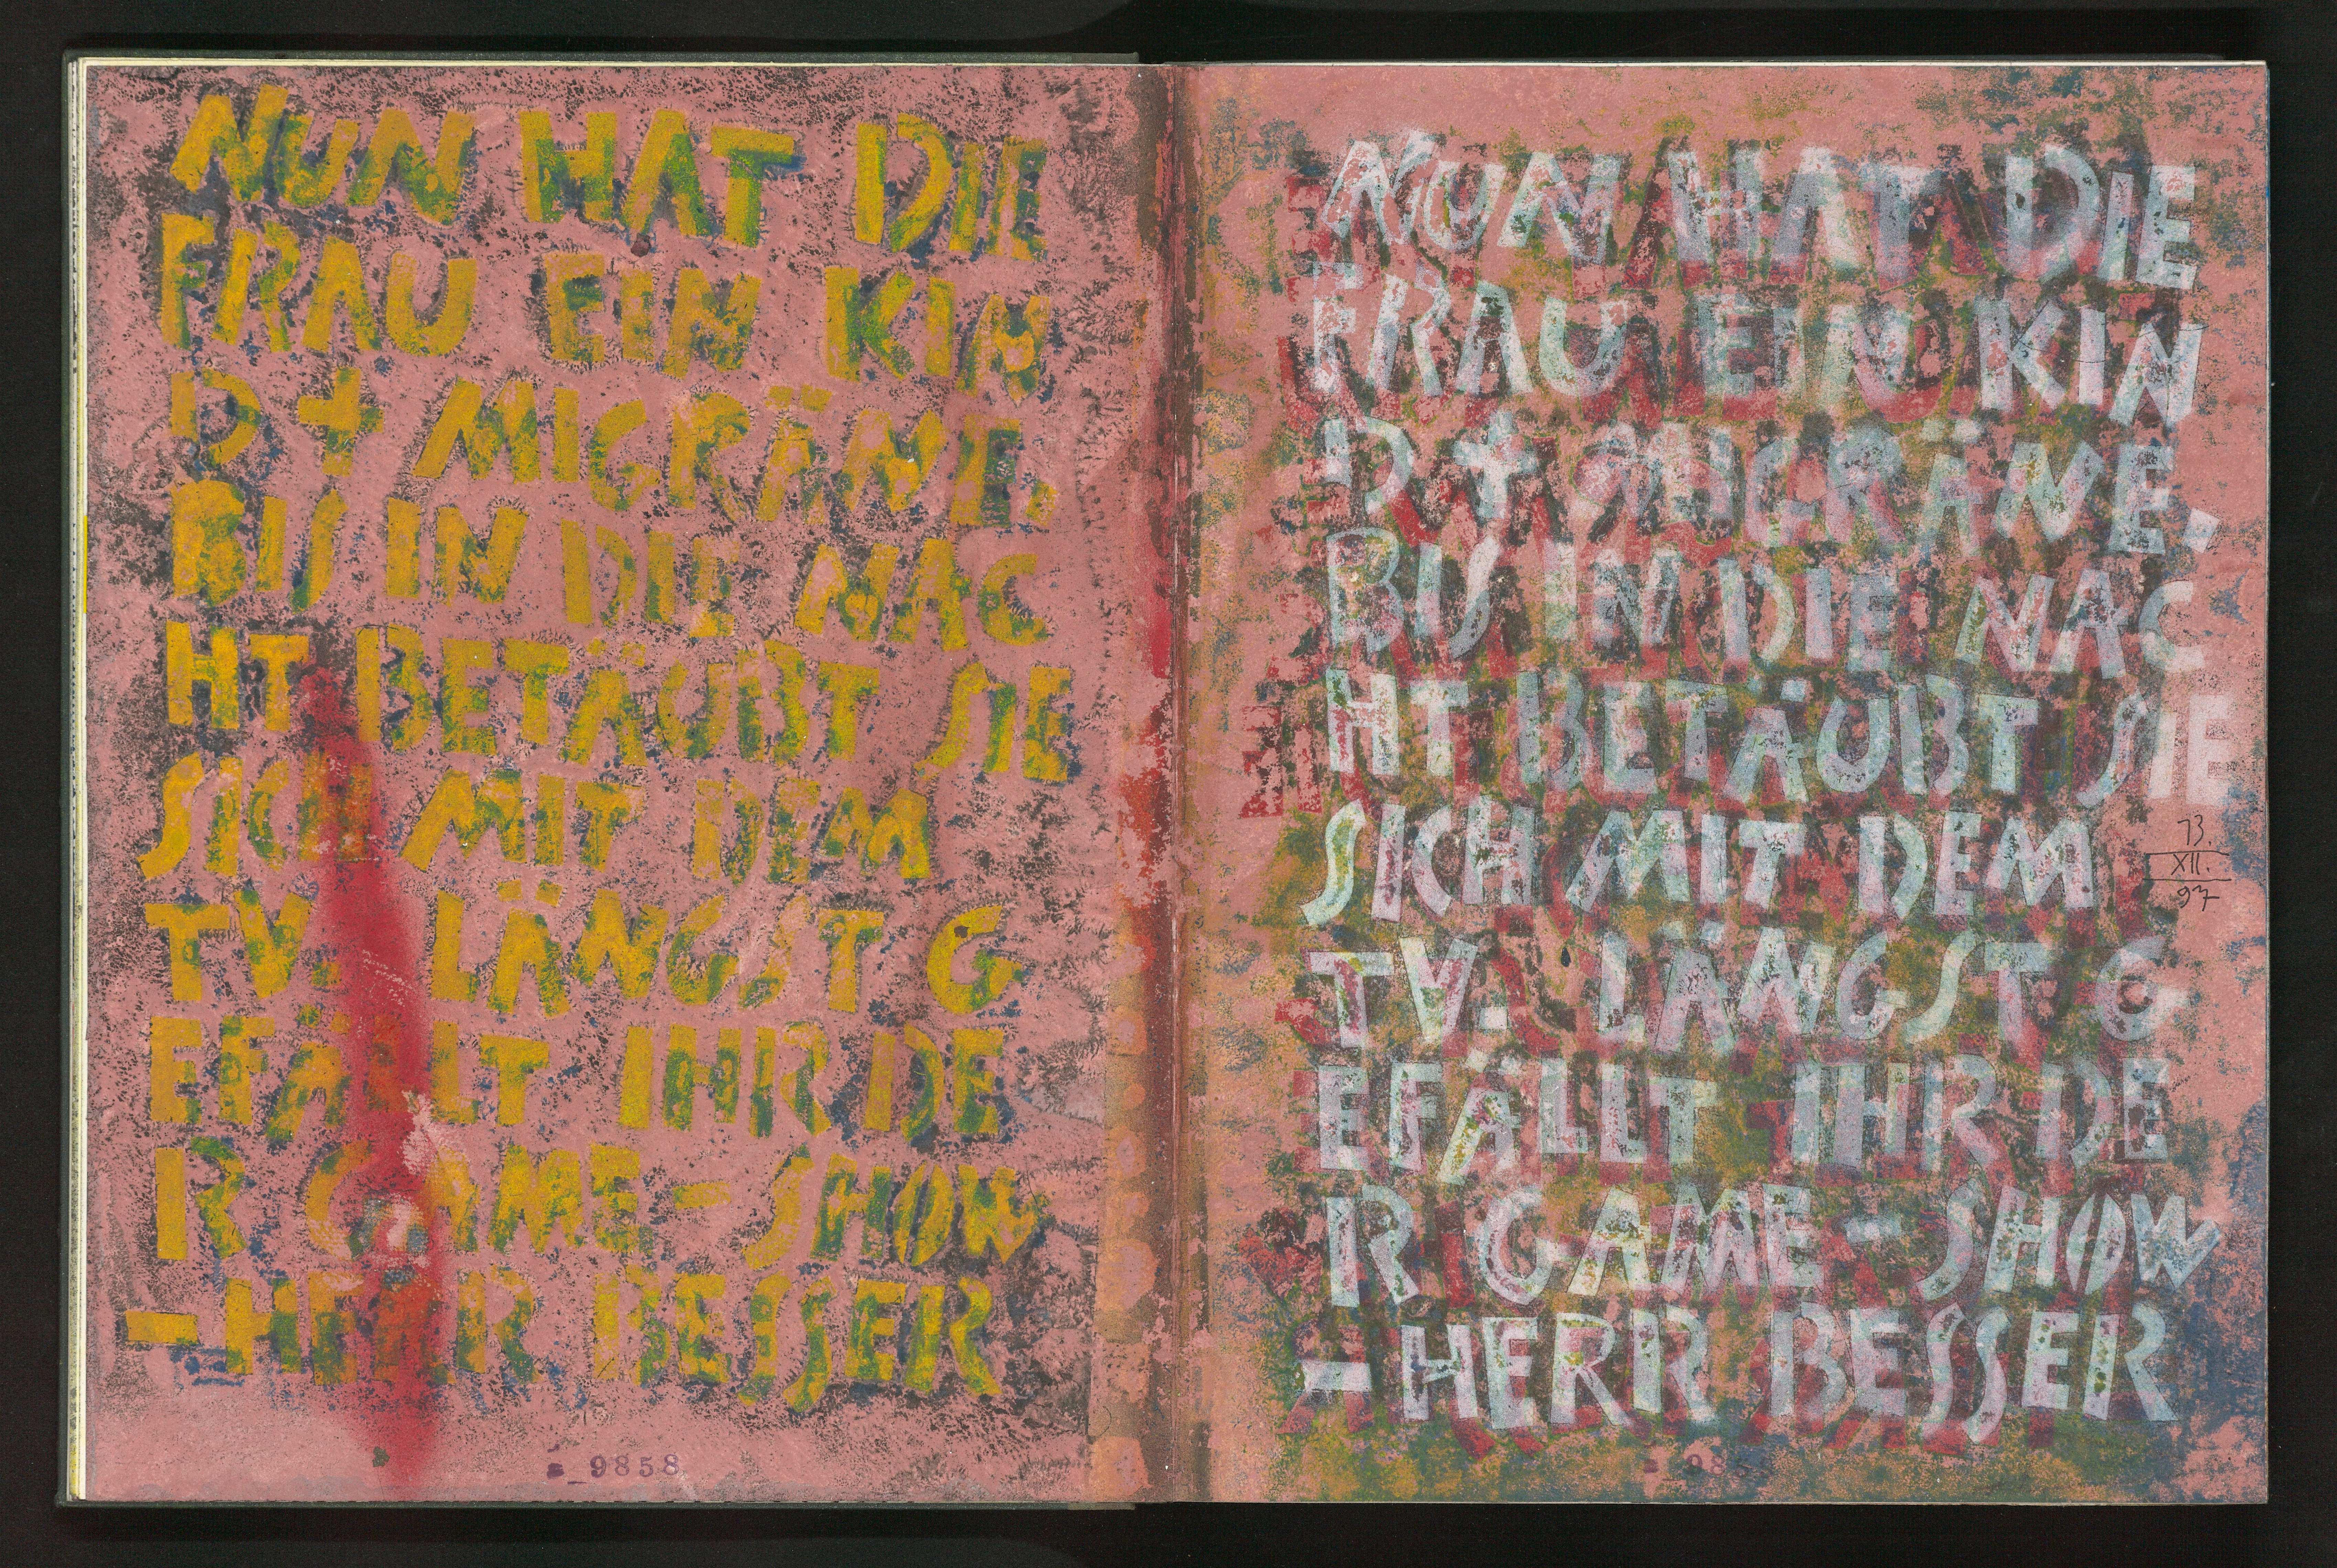 NUN HAT DIE
FRAU EIN KIN
D + MIGRÄNE.
BIS IN DIE NAC
HT BETÄUBT SIE
SICH MIT DEM
TV. LÄNGST G
EFÄLLT IHR DE
R GAME-SHOW
-HERR BESSER
9858
NUN HAT DIE
FRAU EIN KIN
D + MIGRÄNE.
BIS IN DIE NAC
HT BETÄUBT SIE
SICH MIT DEM
13.
XII.
97
TV. LÄNGST G
EFÄLLT IHR DE
R GAME-SHOW
-HERR BESSER